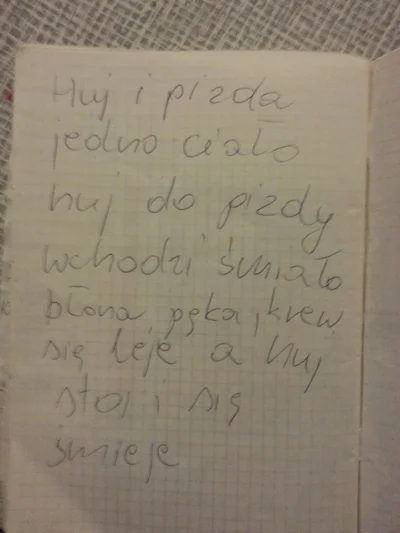 Huj i pizda
jedno ciało
huj do pizdy
wchodzi śmiało
błona pęka, krew
się leje a huj
stoi i się
śmieje